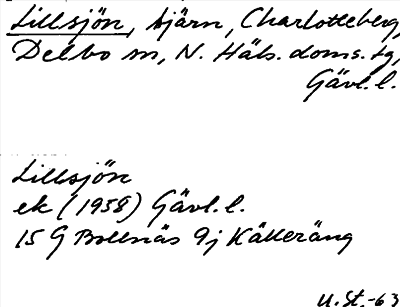 Lillsjön, tjärn, Charlotteberg,
Delbo sn, N. Häls. doms. tg,
Gävl. l.
Lillsjön
ek (1958) Gävl. l.
15 G Bollnäs 9j Källeräng
U. St. -63